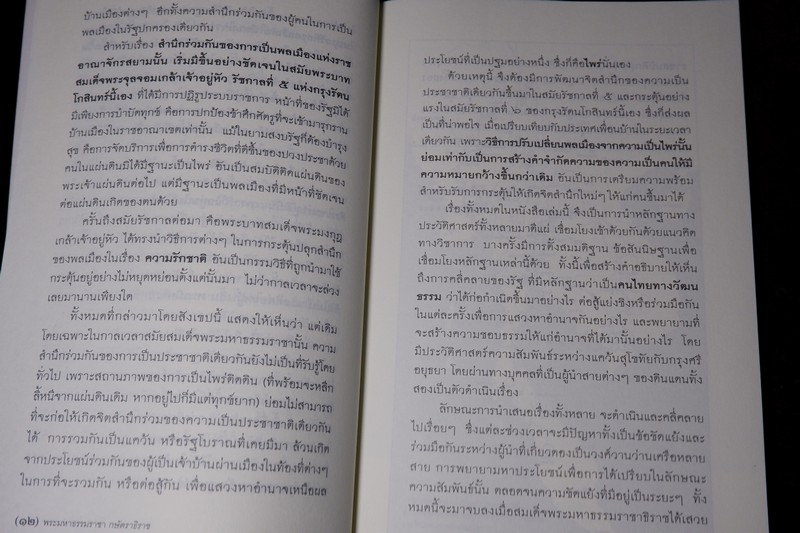 บ้านเมืองต่างๆ อีกทั้งความสำนึกร่วมกันของผู้คนในการเป็น
พลเมืองในรัฐปกครองเดียวกัน
สำหรับเรื่อง สำนึกร่วมกันของการเป็นพลเมืองแห่งราช
อาณาจักรสยามนั้น เริ่มมีขึ้นอย่างชัดเจนในสมัยพระบาท
สมเด็จพระจุลจอมเกล้าเจ้าอยู่หัว รัชกาลที่ ๕ แห่งกรุงรัตน
โกสินทร์นี้เอง ที่ได้มีการปฏิรูประบบราชการ หน้าที่ของรัฐมิได้
มีเพียงการบำบัดทุกข์ คือการปกป้องข้าศึกศัตรูที่จะเข้ามารุกราน
บ้านเมืองในราชอาณาเขตเท่านั้น แม้ในยามสงบรัฐก็ต้องบำรุง
สุข คือการจัดบริการเพื่อการดำรงชีวิตที่ดีขึ้นของปวงประชาด้วย
คนในแผ่นดินมิได้มีฐานะเป็นไพร่ อันเป็นสมบัติติดแผ่นดินของ
พระเจ้าแผ่นดินต่อไป แต่มีฐานะเป็นพลเมืองที่มีหน้าที่ชัดเจน
ต่อแผ่นดินเกิดของตนด้วย
ครั้นถึงสมัยรัชกาลต่อมา คือพระบาทสมเด็จพระมงกุฎ
เกล้าเจ้าอยู่หัว ได้ทรงนำวิธีการต่างๆ ในการกระตุ้นปลุกสำนึก
ของพลเมืองในเรื่อง ความรักชาติ อันเป็นกรรมวิธีที่ถูกนำมาใช้
กระตุ้นอยู่อย่างไม่หยุดหย่อนตั้งแต่นั้นมา ไม่ว่ากาลเวลาจะล่วง
เลยมานานเพียงใด
ทั้งหมดที่กล่าวมาโดยสังเขปนี้ แสดงให้เห็นว่า แต่เดิม
โดยเฉพาะในกาลเวลาสมัยสมเด็จพระมหาธรรมราชานั้น ความ
สำนึกร่วมกันของการเป็นประชาชาติเดียวกันยังไม่เป็นที่รับรู้โดย
ทั่วไป เพราะสถานภาพของการเป็นไพร่ติดดิน (ที่พร้อมจะหลีก
ลี้หนีจากแผ่นดินเดิม หากอยู่ไปก็มีแต่ทุกข์ยาก) ย่อมไม่สามารถ
ที่จะก่อให้เกิดจิตสำนึกร่วมของความเป็นประชาชาติเดียวกัน
ได้ การรวมกันเป็นแคว้น หรือรัฐโบราณที่เคยมีมา ล้วนเกิด
จากประโยชน์ร่วมกันของผู้เป็นเจ้าบ้านผ่านเมืองในท้องที่ต่างๆ
ในการที่จะรวมกัน หรือต่อสู้กัน เพื่อแสวงหาอำนาจเหนือผล
(๑๒) พระมหาธรรมราชา กษัตราธิราช
ประโยชน์ที่เป็นปฐมอย่างหนึ่ง ซึ่งก็คือไพร่นั่นเอง
ด้วยเหตุนี้ จึงต้องมีการพัฒนาจิตสำนึกของความเป็น
ประชาชาติเดียวกันขึ้นมาในสมัยรัชกาลที่ ๕ และกระตุ้นอย่าง
แรงในสมัยรัชกาลที่ ๖ ของกรุงรัตนโกสินทร์นี้เอง ซึ่งก็ส่งผล
เป็นที่น่าพอใจ เมื่อเปรียบเทียบกับประเทศเพื่อนบ้านในระยะเวลา
เดียวกัน เพราะวิธีการปรับเปลี่ยนพลเมืองจากความเป็นไพร่นั้น
ย่อมเท่ากับเป็นการสร้างคำจำกัดความของความเป็นคนให้มี
ความหมายกว้างขึ้นกว่าเดิม อันเป็นการเตรียมความพร้อม
สำหรับรับการกระตุ้นให้เกิดจิตสำนึกใหม่ๆ ให้แก่คนขึ้นมาได้
เรื่องทั้งหมดในหนังสือเล่มนี้ จึงเป็นการนำหลักฐานทาง
ประวัติศาสตร์ทั้งหลายมาตีแผ่ เชื่อมโยงเข้าด้วยกันด้วยแนวคิด
ทางวิชาการ บางครั้งมีการตั้งสมมติฐาน ข้อสันนิษฐานเพื่อ
เชื่อมโยงหลักฐานเหล่านี้ด้วย ทั้งนี้เพื่อสร้างคำอธิบายให้เห็น
ถึงการคลี่คลายของรัฐ ที่มีหลักฐานว่าเป็นคนไทยทางวัฒน
ธรรม ว่าได้ก่อกำเนิดขึ้นมาอย่างไร ต่อสู้แย่งชิงหรือร่วมมือกัน
ในแต่ละครั้งเพื่อการแสวงหาอำนาจกันอย่างไร และพยายามที่
จะสร้างความชอบธรรมให้แก่อำนาจที่ได้มานั้นอย่างไร โดย
มีประวัติศาสตร์ความสัมพันธ์ระหว่างแคว้นสุโขทัยกับกรุงศรี
อยุธยา โดยผ่านทางบุคคลที่เป็นผู้นำสายต่างๆ ของดินแดนทั้ง
สองเป็นตัวดำเนินเรื่อง
ลักษณะการนำเสนอเรื่องทั้งหลาย จะดำเนินและคลี่คลาย
ไปเรื่อยๆ ซึ่งแต่ละช่วงเวลาจะมีปัญหาทั้งเป็นข้อขัดแย้งและ
ร่วมมือกันระหว่างผู้นำที่เกี่ยวดองเป็นวงศ์วานว่านเครือหลาย
สาย การพยายามหาประโยชน์เพื่อการได้เปรียบในลักษณะ
ความสัมพันธ์นั้น ตลอดจนความขัดแย้งที่มีอยู่เป็นระยะๆ ทั้ง
หมดนี้จะมาจบลงเมื่อสมเด็จพระมหาธรรมราชาธิราชได้เสวย